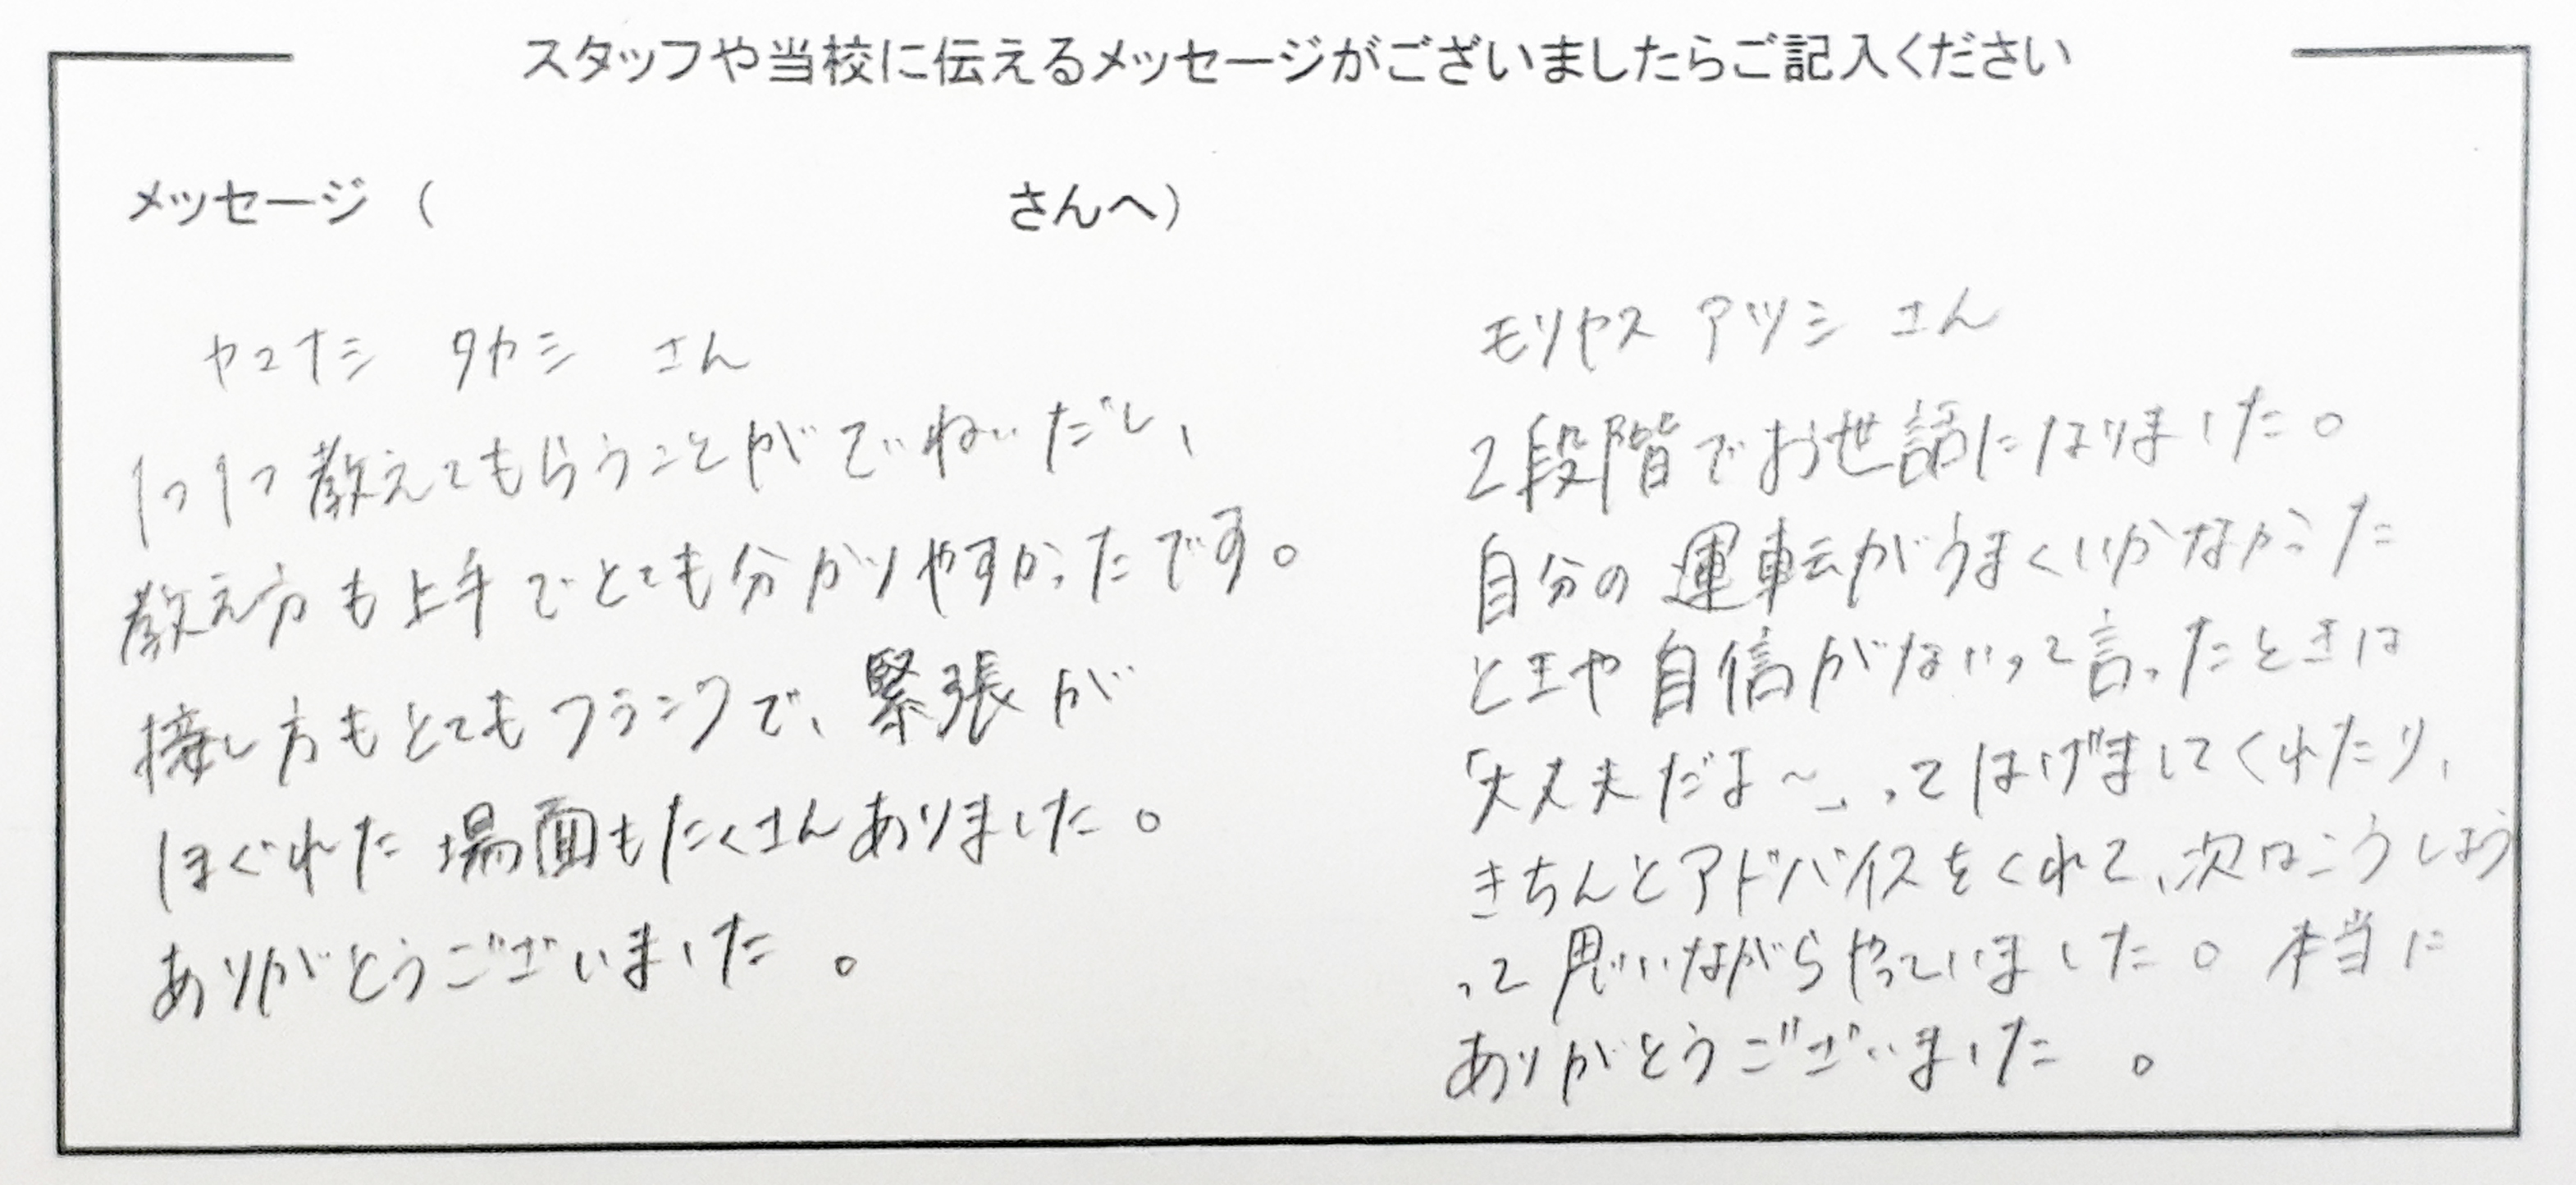 スタッフや当校に伝えるメッセージがございましたらご記入ください
メッセージ（　　　　　　　　　　さんへ）
ヤマナシ　タカシ　さん
1つ1つ教えてもらうことがていねいだし、
教え方も上手でとても分かりやすかったです。
接し方もとてもフランクで、緊張が
ほぐれた場面もたくさんありました。
ありがとうございました。
モリヤス アツシ さん
2段階でお世話になりました。
自分の運転がうまくいかなかった
ときや自信がないって言ったときは
「大丈夫だよ〜」ってはげましてくれたり、
きちんとアドバイスをくれて、次はこうしよう
って思いながらやっていました。本当に
ありがとうございました。